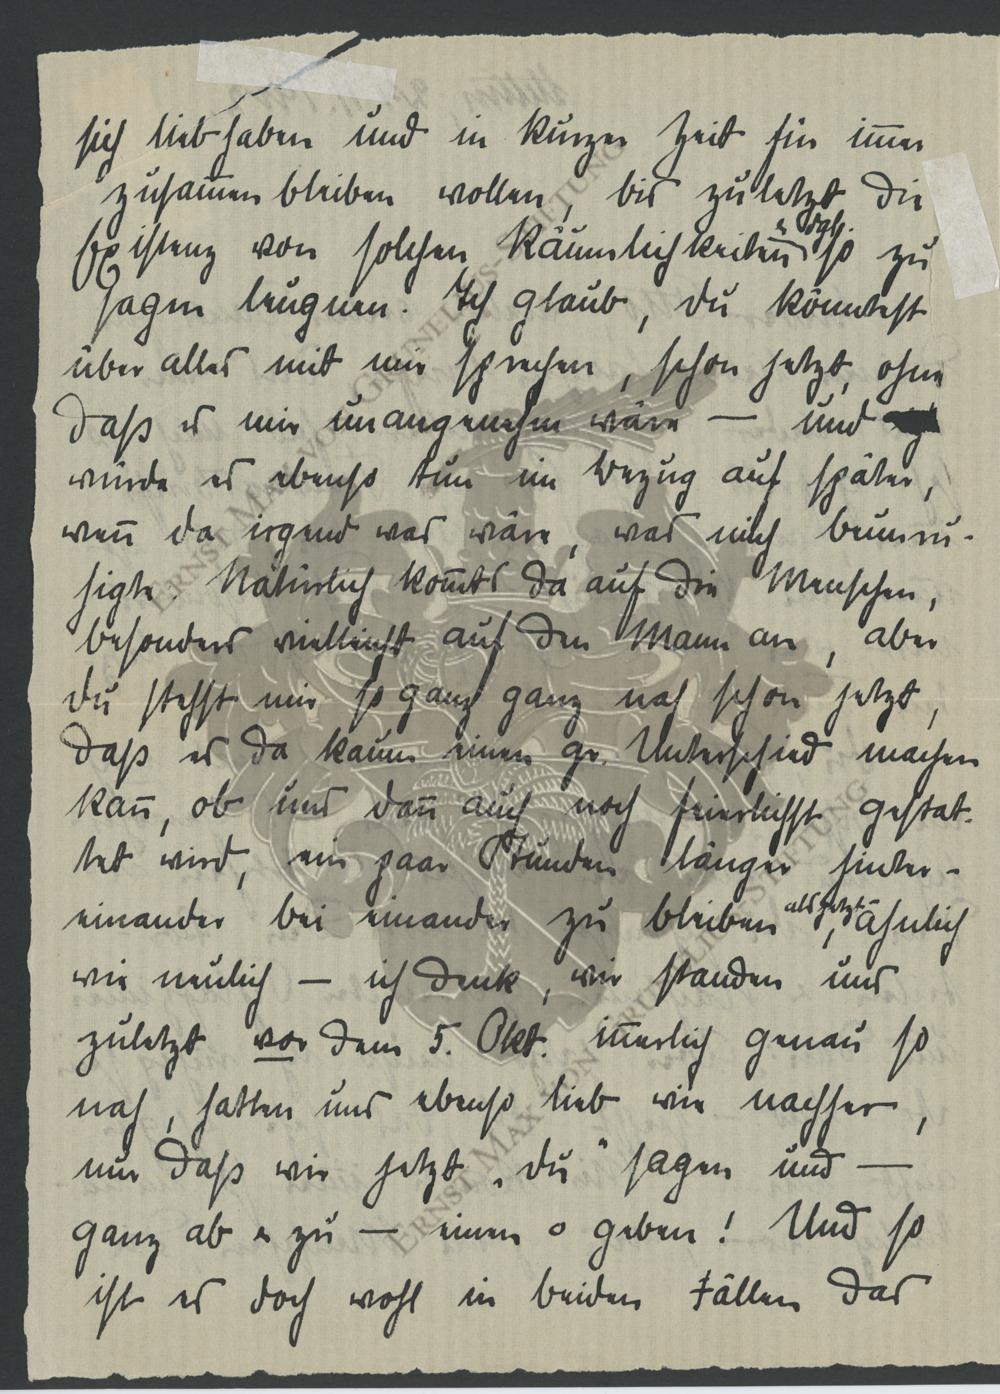 sich lieb haben und in kurzer Zeit für im̅er
zusam̅en bleiben wollen, bis zuletzt die
Existenz von solchen Räumlichkeiten u dgl. so zu
sagen leugnen. Ich glaub, du könntest
über alles mit mir sprechen, schon jetzt, ohne
daß es mir unangenehm wäre — und
würde es ebenso tun in Bezug auf später,
wen̅ da irgend was wäre, was mich beunru-
higte. Natürlich kom̅ts da auf die Menschen,
besonders vielleicht auf den Mann an, aber
du stehst mir so ganz ganz nah schon jetzt,
daß es da kaum einen gr. Unterschied machen
kan̅, ob uns dan̅ auch noch feierlichst gestat-
tet wird, ein paar Stunden länger hinter-
einander bei einander zu bleiben als jetzt, ähnlich
wie neulich — ich denk, wir standen uns
zuletzt vor dem 5. Okt. in̅erlich genau so
nah, hatten uns ebenso lieb wie nachher,
nur daß wir jetzt „du“ sagen und —
ganz ab u zu — einen o geben! Und so
ist es doch wohl in beiden Fällen das
ERNST MAX VON GRUNELIUS-STIFTUNG
ERNST MAX VON GRUNELIUS-STIFTUNG